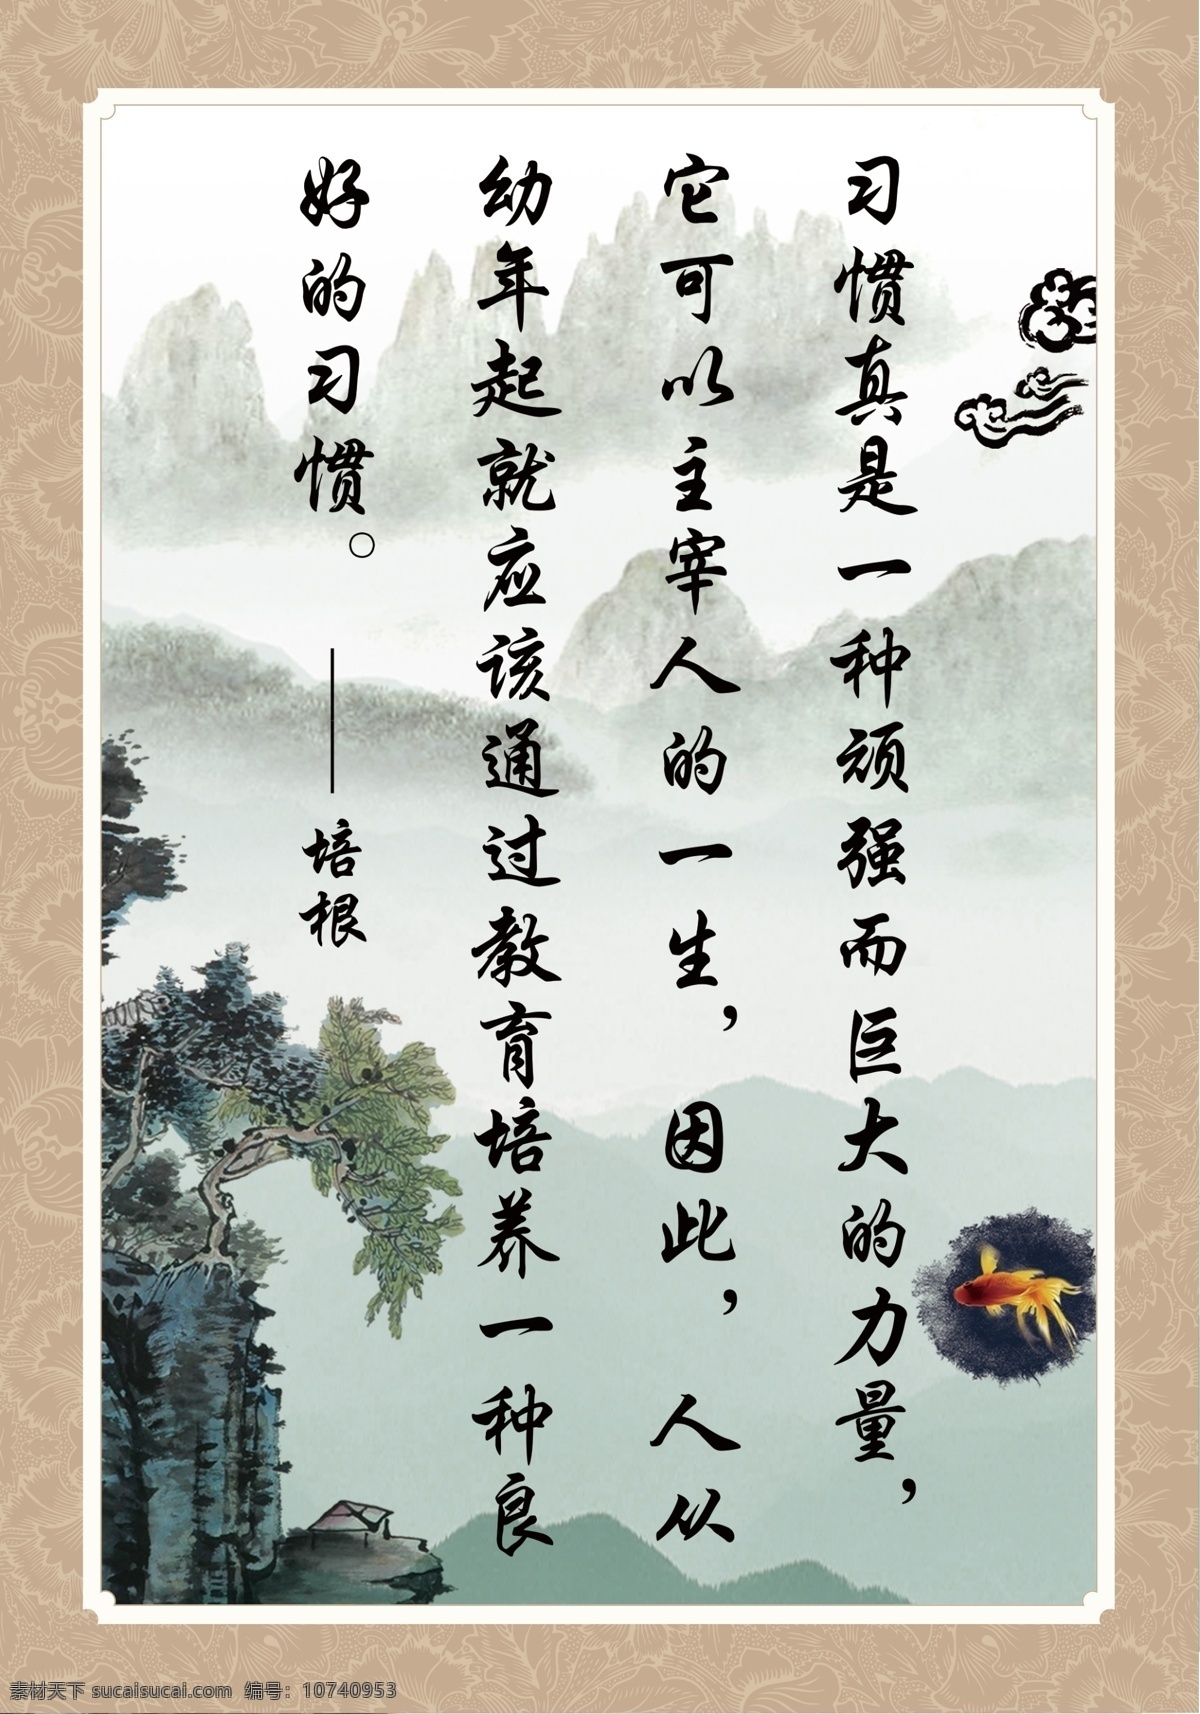 习惯真是一种顽强而巨大的力量，
它可以主宰人的一生，因此，人从
幼年起就应该通过教育培养一种良
好的习惯。——培根
素材天下 sucaisucai.com 编号：10740953